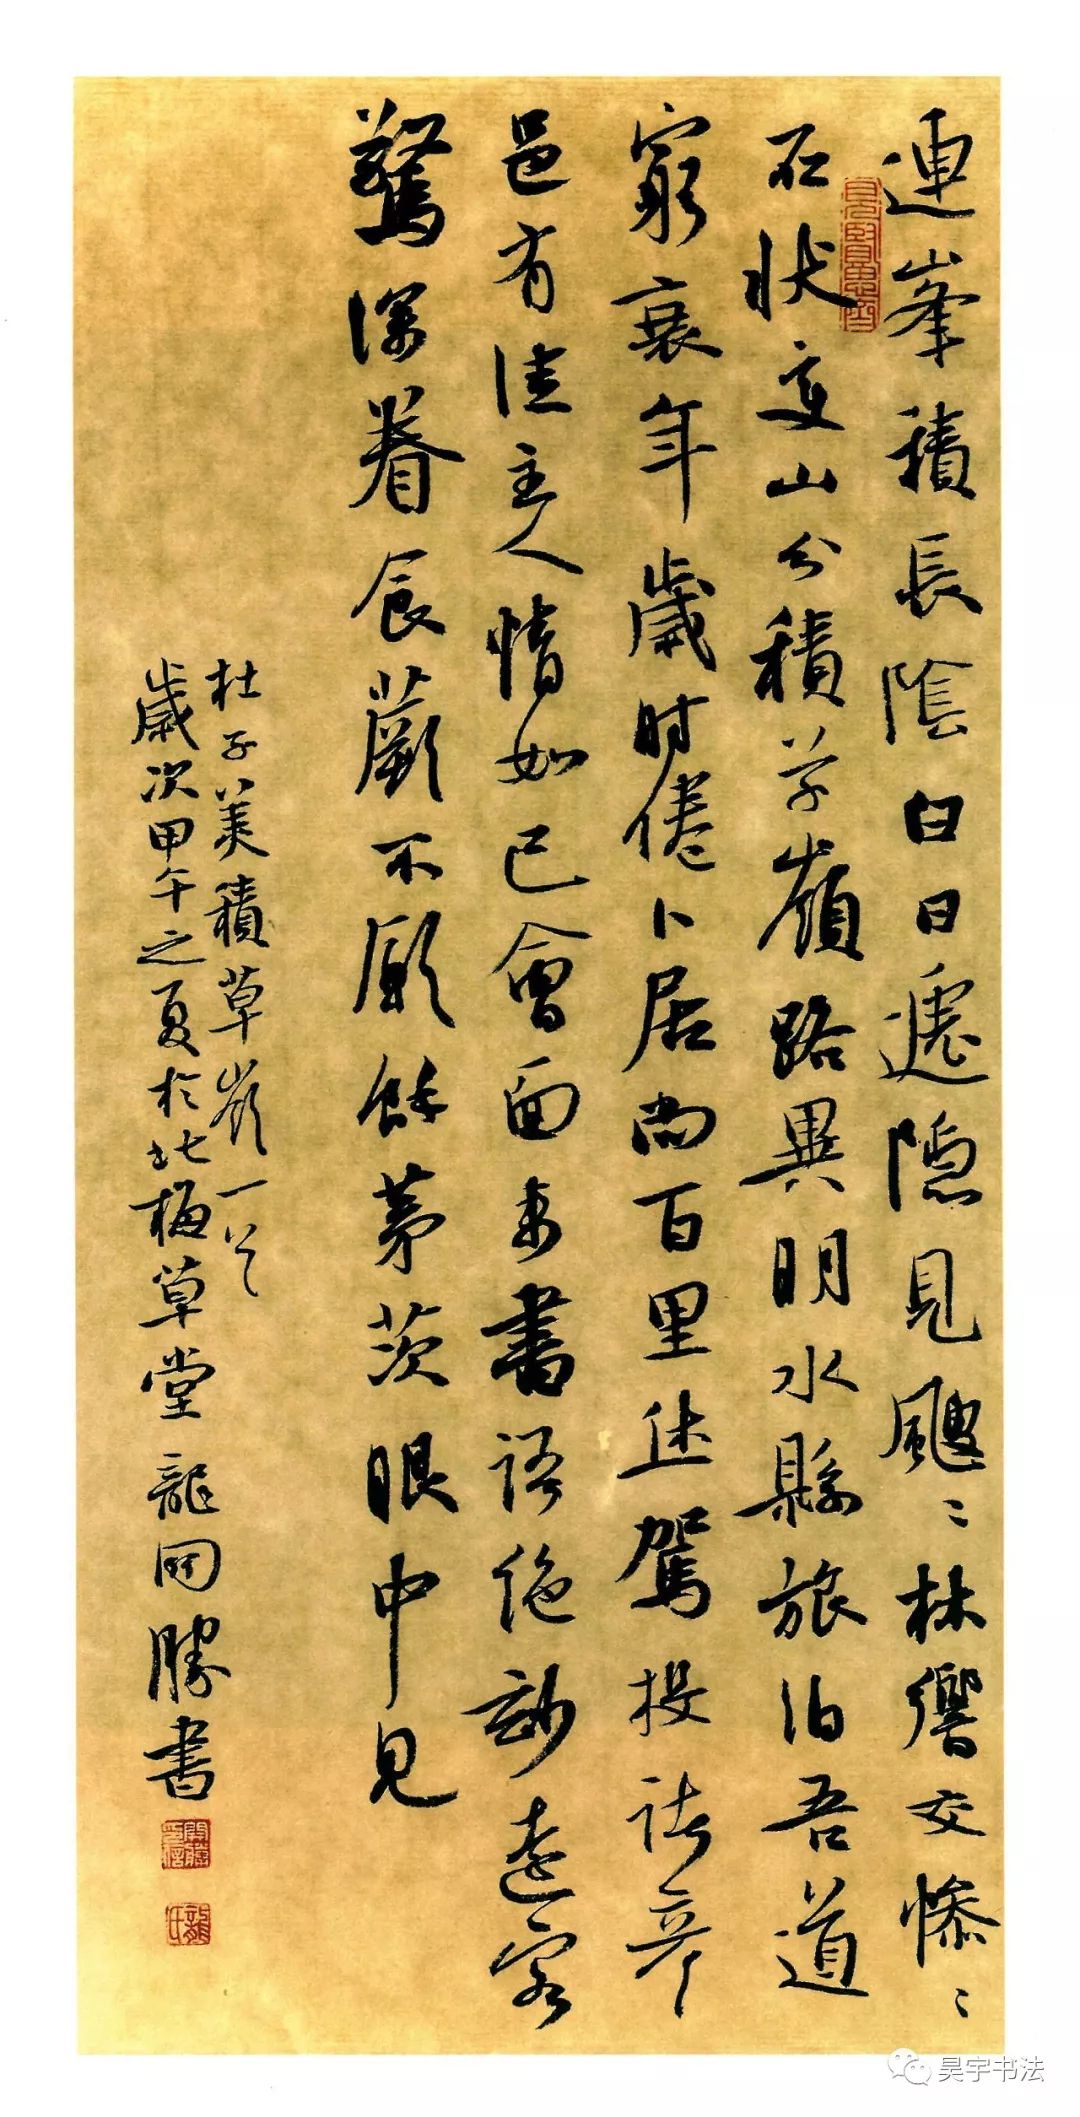 連峯積長陰白日遞隱見颼〻林響交慘〻
石狀變山分積草嶺路異明水縣旅泊吾道
窮衰年歲時倦卜居尚百里休駕投諸彥
邑有佳主人情如已會面來書語絕妙遠客
驚深眷食蕨不願餘茅茨眼中見
杜子美積草嶺一首
歲次甲午之夏於北梅草堂龍開勝書
見賢思齊
開勝
龍氏
昊宇书法